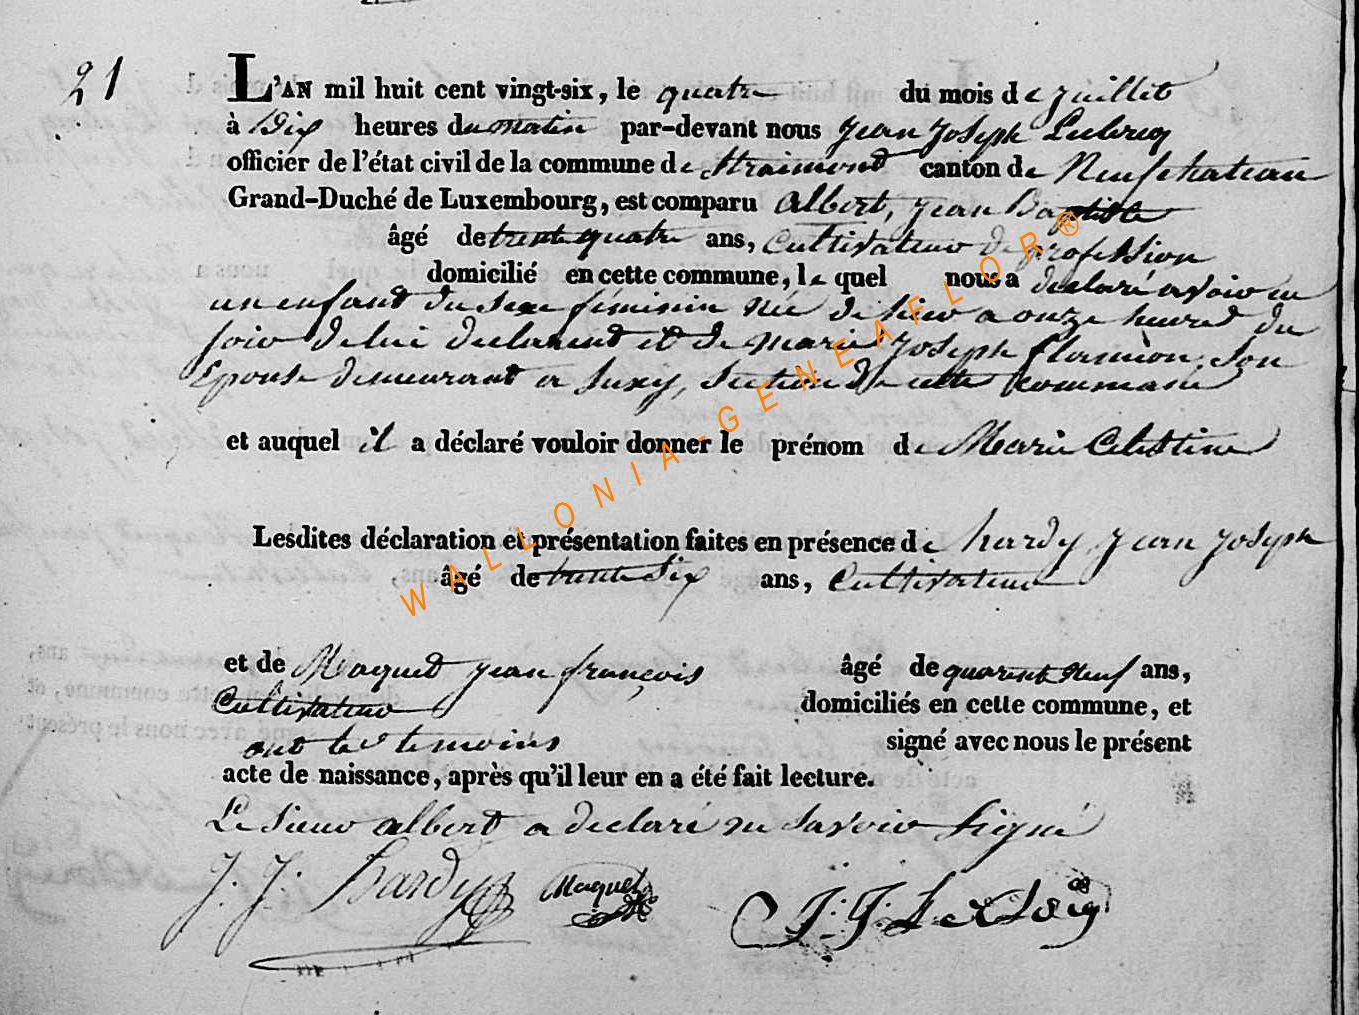 21
L'AN mil huit cent vingt-six, le quatre du mois de juillet
à Dix heures du matin par-devant nous jean joseph Leclercq
officier de l'état civil de la commune de Straimont canton de Neufchateau
Grand-Duché de Luxembourg, est comparu albert, jean Baptiste
âgé de trente quatre ans, Cultivateur de profession
domicilié en cette commune, le quel nous a declaré avoir eu
un enfant du sexe féminin née de hier a onze heures du
soir de lui declarant et de marie joseph flamion son
Epouse demeurant a Suxy, Section de cette commune
et auquel il a déclaré vouloir donner le prénom de Marie Celestine
Lesdites déclaration et présentation faites en présence de hardy jean joseph
âgé de trente Six ans, Cultivateur
et de Maquet jean françois âgé de quarente Neuf ans,
Cultivateur domiciliés en cette commune, et
ont les temoins signé avec nous le présent
acte de naissance, après qu'il leur en a été fait lecture.
Le Sieur albert a declaré ne savoir Signé
J. J. Hardy Maquet J. J. Leclercq
WALLONIA-GENEAFLOR®